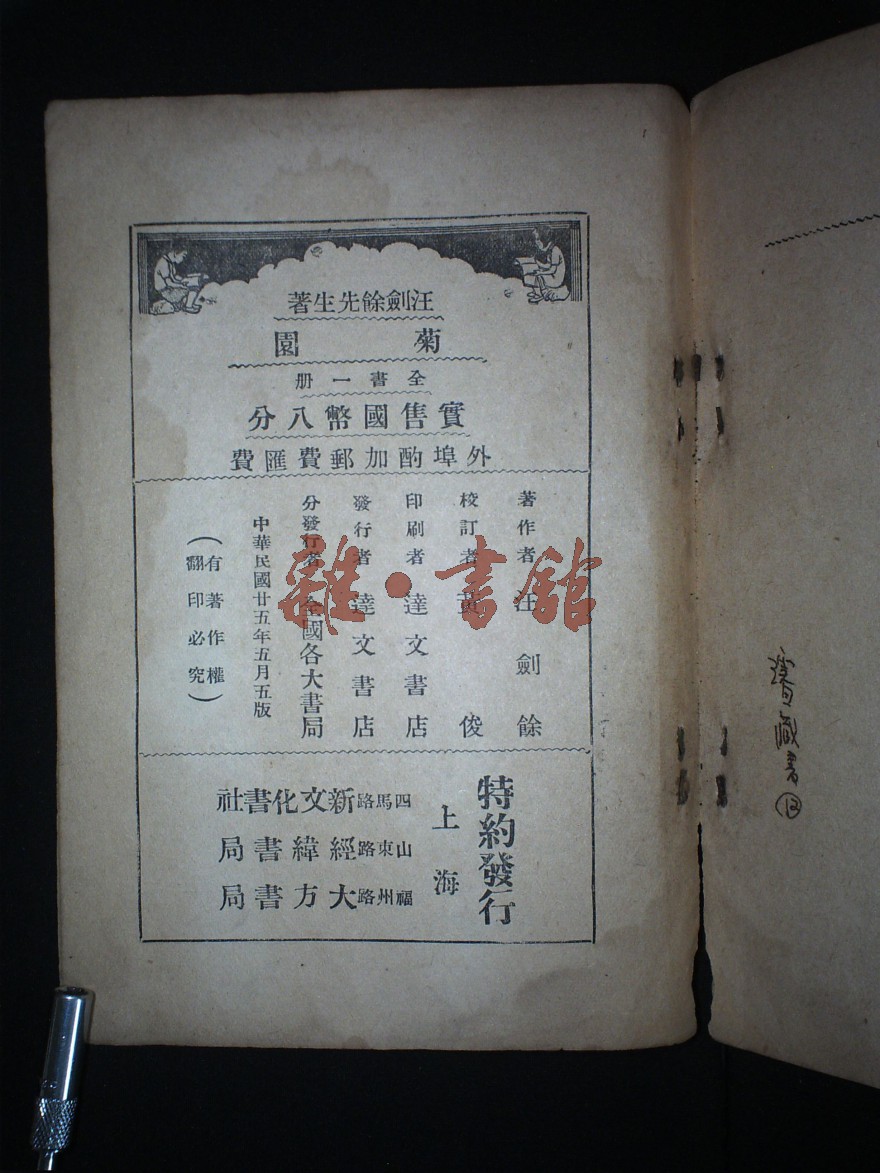 汪劍餘先生著
菊園
全書一册
實售國幣八分
外埠酌加郵費匯費
著作者 汪劍餘
校訂者 黃俊
印刷者 達文書店
發行者 達文書店
分發行者 全國各大書局
中華民國廿五年五月五版
(有著作權
翻印必究)
特約發行
上海
四馬路新文化書社
山東路經緯書局
福州路大方書局
雜·書館
藏書
13